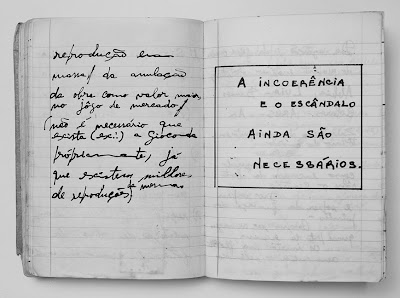 reprodução em
massa/ da anulação
da obra como valor maior
no jôgo de mercado/
(não é necessário que
exista (ex:) a Gioconda
pròpriamente, já
que existem milhões
de reproduções
da mesma)
A INCOERÊNCIA
E O ESCÂNDALO
AINDA SÃO
NECESSÁRIOS.